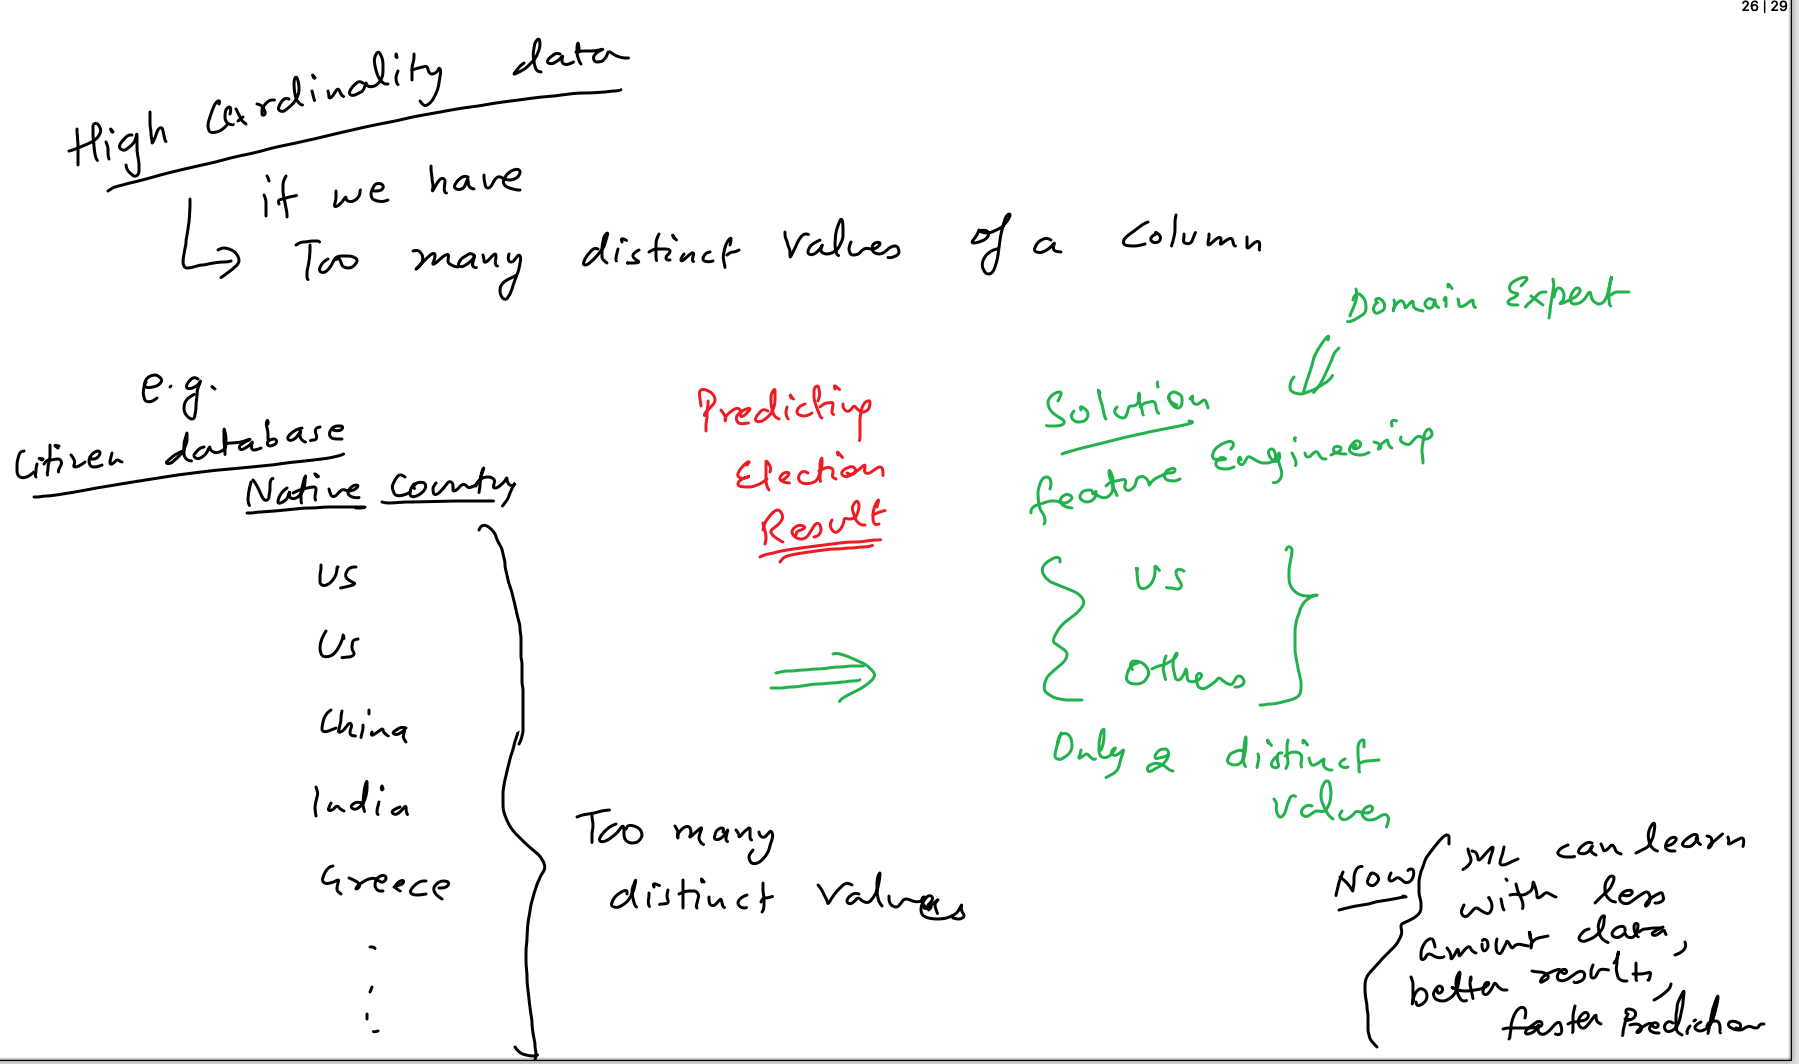 26 | 29
High Cardinality data
if we have
Too many distinct values of a column
e.g.
Citizen database
Native Country
US
US
China
India
Greece
Too many
distinct values
Predicting
Election
Result
Domain Expert
Solution
feature Engineering
US
Others
Only 2 distinct
values
Now
ML can learn
with less
amount data,
better results,
faster Prediction